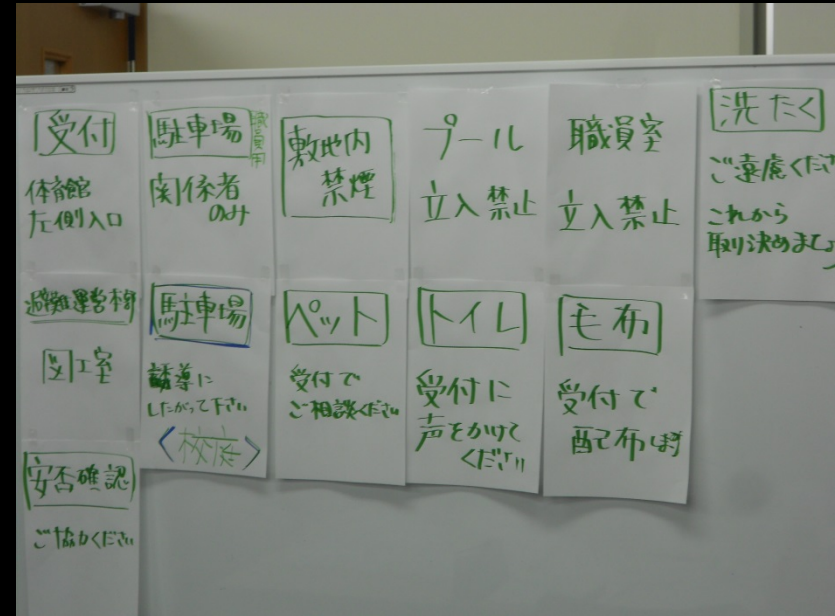 受付
体育館
左側入口
駐車場
職員用
関係者
のみ
敷地内
禁煙
プール
立入禁止
職員室
立入禁止
洗たく
ご遠慮くださ
これから
取り決めまし
避難運営本部
図工室
駐車場
誘導に
したがって下さい
〈校庭〉
ペット
受付で
ご相談ください
トイレ
受付に
声をかけて
ください
毛布
受付で
配布します
安否確認
ご協力ください